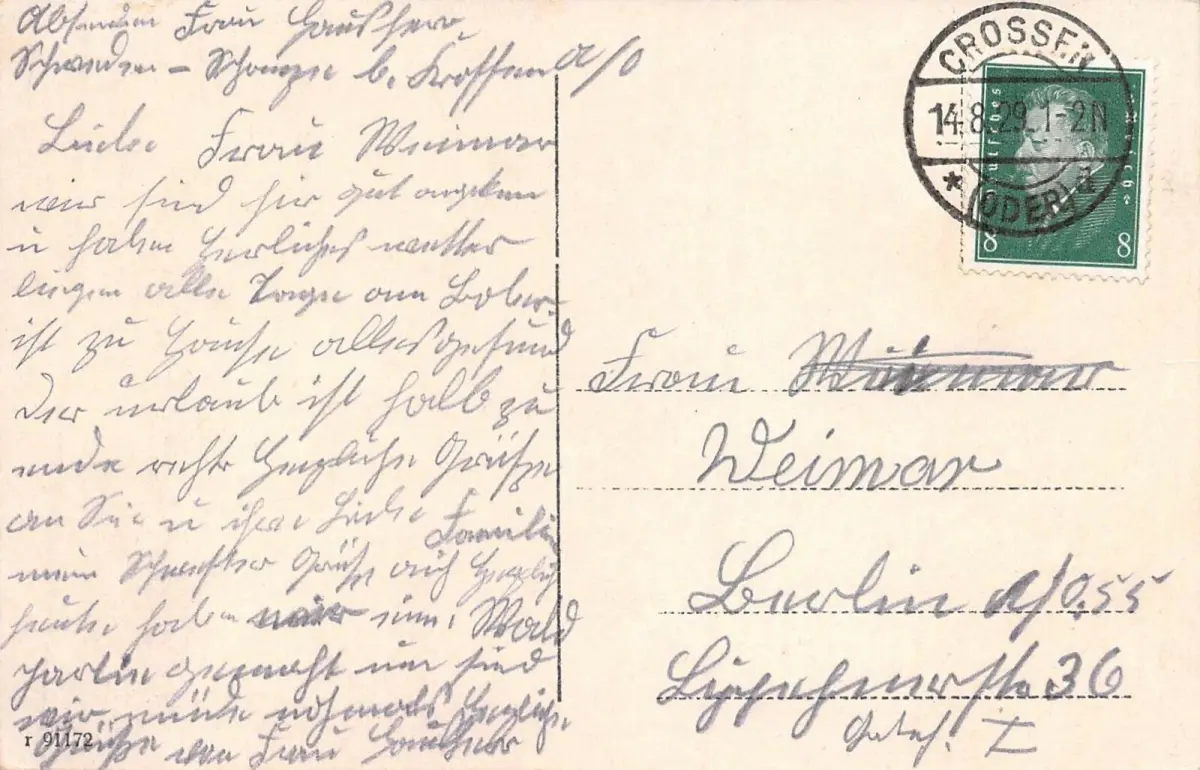 Absender Frau Hausherr
Schweden-Schanze b. Krossen a/O
Liebe Frau Weimar
wir sind hir gut
u haben herliches wetter
liegen alle Tage am Bober
ist zu Hause alles gesund
der urlaub ist halb zu
ende recht Herzliche Grüße
an Sie u ihre Liebe Familie
mein Schwester Grüßt auch Herzlich
heute haben wir eine Wald
partie gemacht un sind
wir müde nochmals Herzliche
Grüße von Frau Hausherr
r 91172
CROSSEN
14.8.29. 1-2N
* (ODER) a
Deutsches Reich
8 8
Frau
Weimar
Berlin N/O.55
36
I